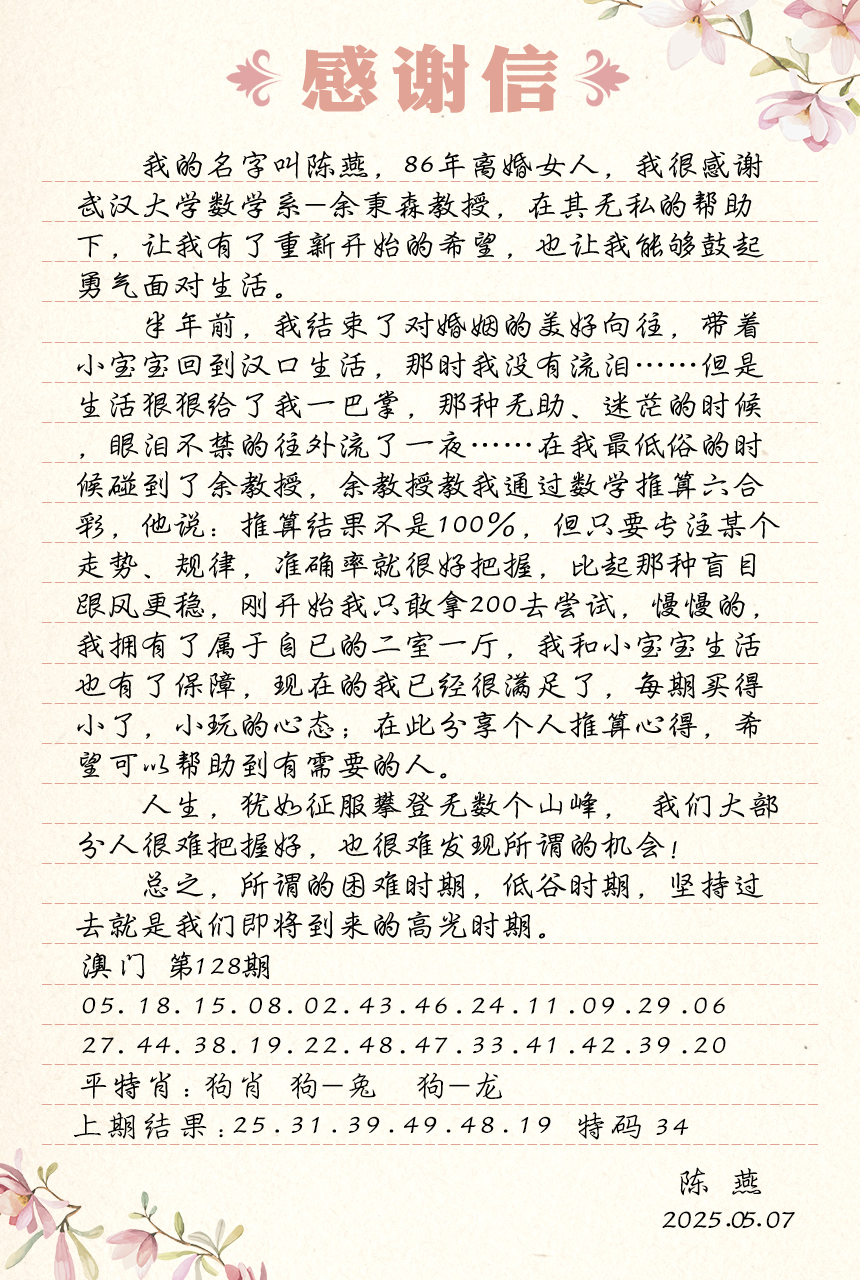 感谢信
我的名字叫陈燕，86年离婚女人，我很感谢
武汉大学数学系—余秉森教授，在其无私的帮助
下，让我有了重新开始的希望，也让我能够鼓起
勇气面对生活。
半年前，我结束了对婚姻的美好向往，带着
小宝宝回到汉口生活，那时我没有流泪……但是
生活狠狠给了我一巴掌，那种无助、迷茫的时候
，眼泪不禁的往外流了一夜……在我最低俗的时
候碰到了余教授，余教授教我通过数学推算六合
彩，他说：推算结果不是100%，但只要专注某个
走势、规律，准确率就很好把握，比起那种盲目
跟风更稳，刚开始我只敢拿200去尝试，慢慢的，
我拥有了属于自已的二室一厅，我和小宝宝生活
也有了保障，现在的我已经很满足了，每期买得
小了，小玩的心态；在此分享个人推算心得，希
望可以帮助到有需要的人。
人生，犹如征服攀登无数个山峰， 我们大部
分人很难把握好，也很难发现所谓的机会！
总之，所谓的困难时期，低谷时期，坚持过
去就是我们即将到来的高光时期。
澳门 第128期
05.18.15.08.02.43.46.24.11.09.29.06
27.44.38.19.22.48.47.33.41.42.39.20
平特肖：狗肖 狗—兔 狗—龙
上期结果：25.31.39.49.48.19 特码 34
陈 燕
2025.05.07